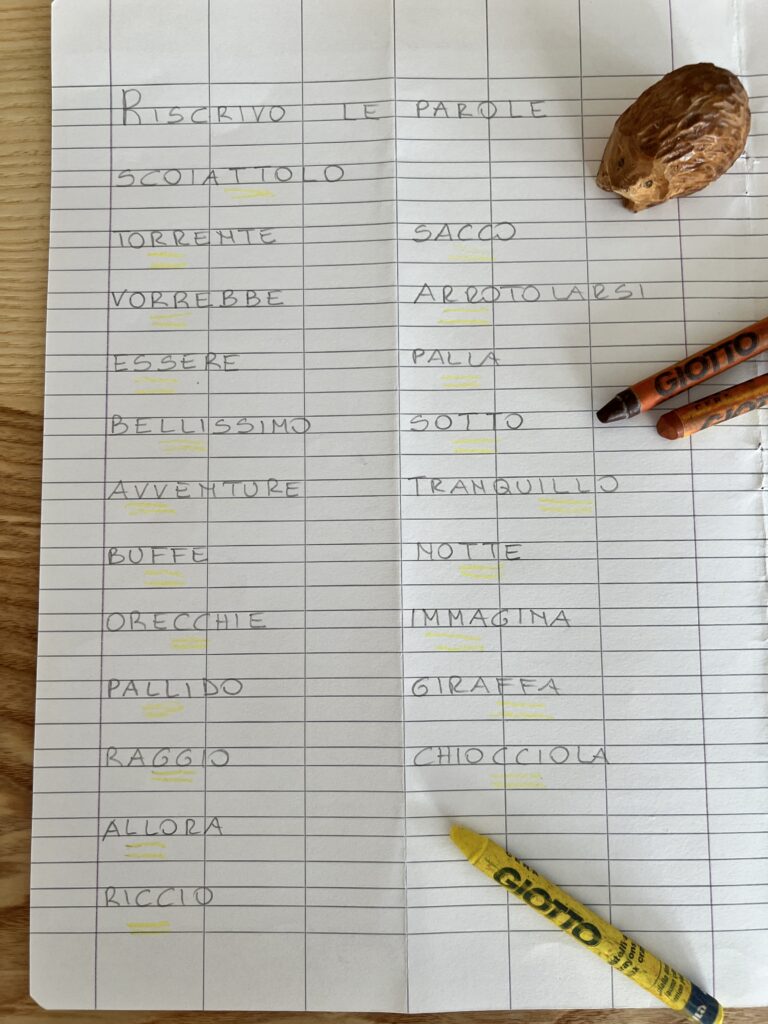 RISCRIVO LE PAROLE
SCOIATTOLO
TORRENTE
VORREBBE
ESSERE
BELLISSIMO
AVVENTURE
BUFFE
ORECCHIE
PALLIDO
RAGGIO
ALLORA
RICCIO
SACCO
ARROTOLARSI
PALLA
SOTTO
TRANQUILLO
NOTTE
IMMAGINA
GIRAFFA
CHIOCCIOLA
GIOTTO
GIOTTO
GIOTTO